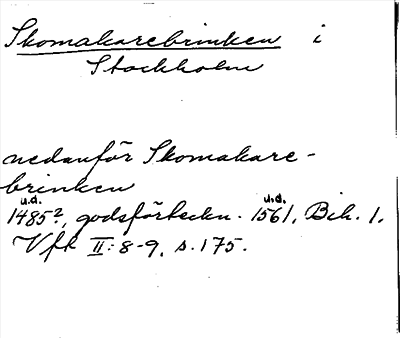 Skomakarebrinken i
Stockholm
nedanför Skomakare-
brinken
u.d. u.d.
1485?, godsförteckn. 1561, Bih. 1,
Vfk II:8-9, s.175.